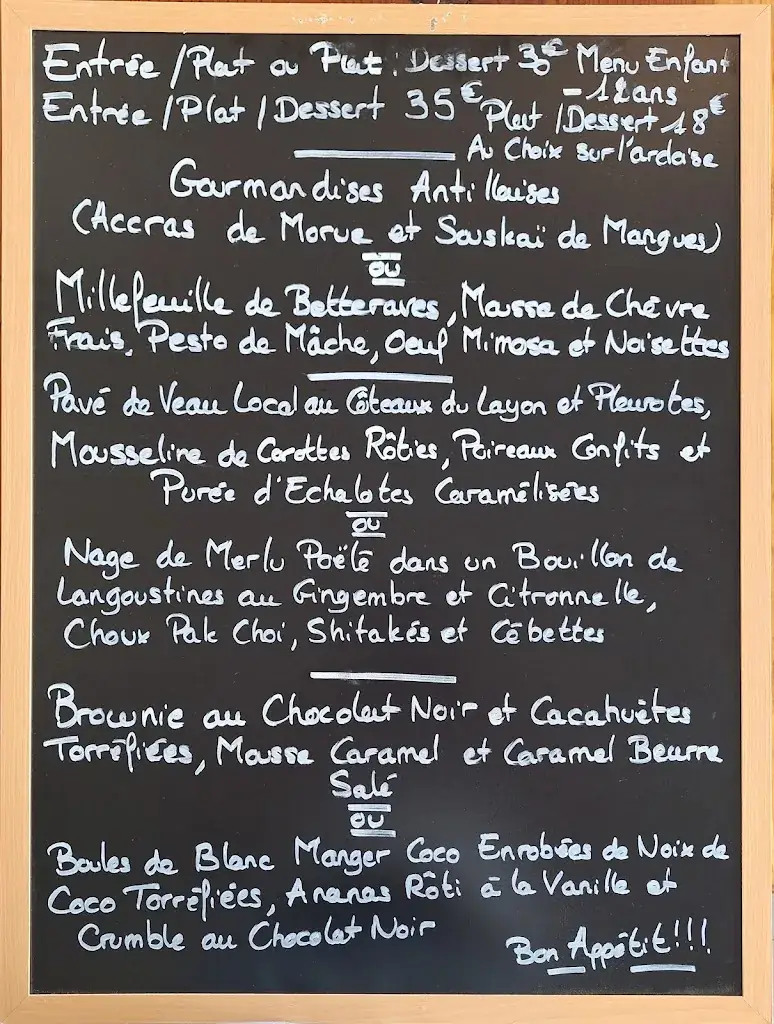 Entrée / Plat ou Plat. Dessert 30€ Menu Enfant
- 12 ans
Entrée / Plat / Dessert 35€ Plat / Dessert 18€
Au Choix sur l'ardoise
Gourmandises Antillaises
(Accras de Morue et Souskaï de Mangues)
ou
Millefeuille de Betteraves, Mousse de Chèvre
Frais, Pesto de Mâche, Oeuf Mimosa et Noisettes
Pavé de Veau Local au Côteaux du Layon et Pleurotes,
Mousseline de Carottes Rôties, Poireaux Confits et
Purée d'Echalotes Caramélisées
ou
Nage de Merlu Poëlé dans un Bouillon de
Langoustines au Gingembre et Citronnelle,
Choux Pak Choi, Shitakés et Cébettes
Brownie au Chocolat Noir et Cacahuètes
Torréfiées, Mousse Caramel et Caramel Beurre
Salé
ou
Boules de Blanc Manger Coco Enrobées de Noix de
Coco Torréfiées, Ananas Rôti à la Vanille et
Crumble au Chocolat Noir
Bon Appétit!!!